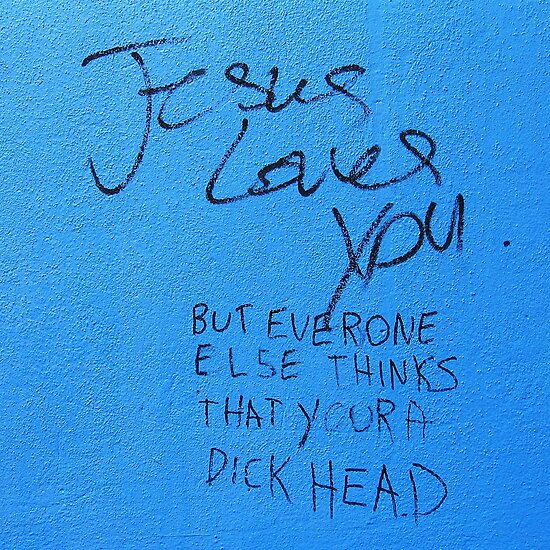 Jesus
Loves
you.
BUT EVERONE
ELSE THINKS
THAT YOUR A
DICK HEAD